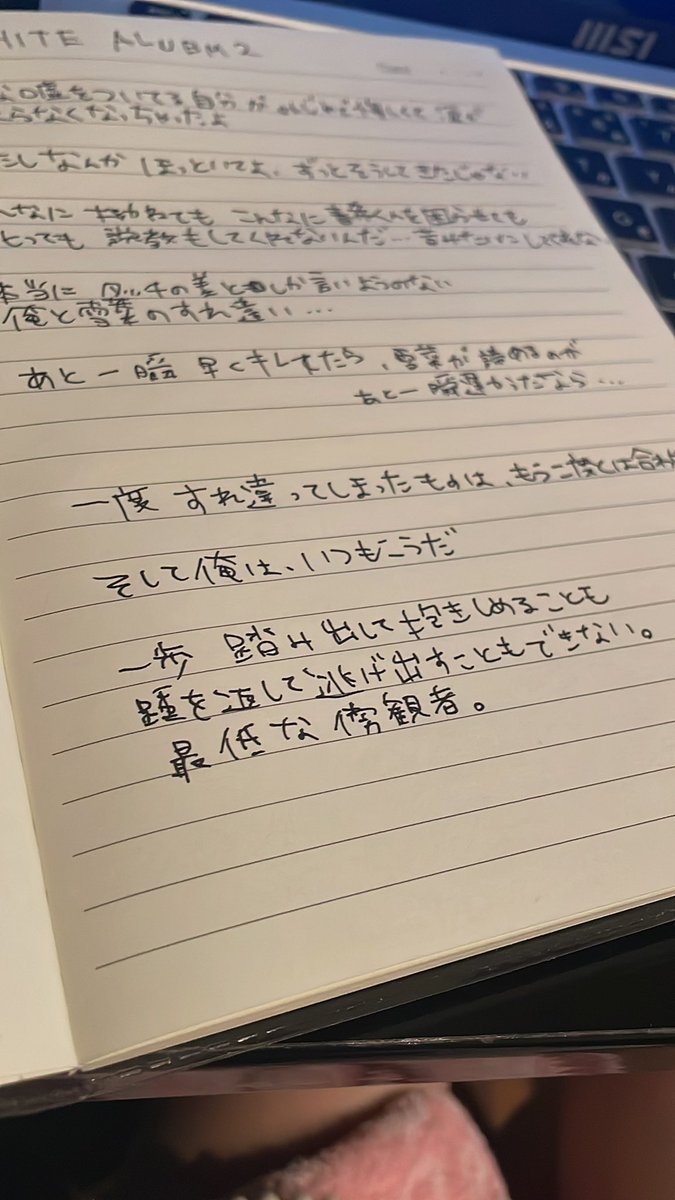 HITE ALUBM2
msi
な嘘をついてる自分が
らなくなっちゃったよ
しなんか ほっといてよ、ずっとそうしてきたじゃない…
なに 拗ねても こんなに春希くんを困らせても
とっても 説教もしてくれないんだ…
本当に タッチの差としか言いようのない
俺と雪菜のすれ違い…
あと一瞬 早くキしてたら、雪菜が諦めるのが
あと一瞬遅かったなら…
一度 すれ違ってしまったものは、もう二度とは合わ
そして俺は、いつもこうだ
一歩 踏み出して抱きしめることも
踵を返して逃げ出すこともできない。
最低な傍観者。